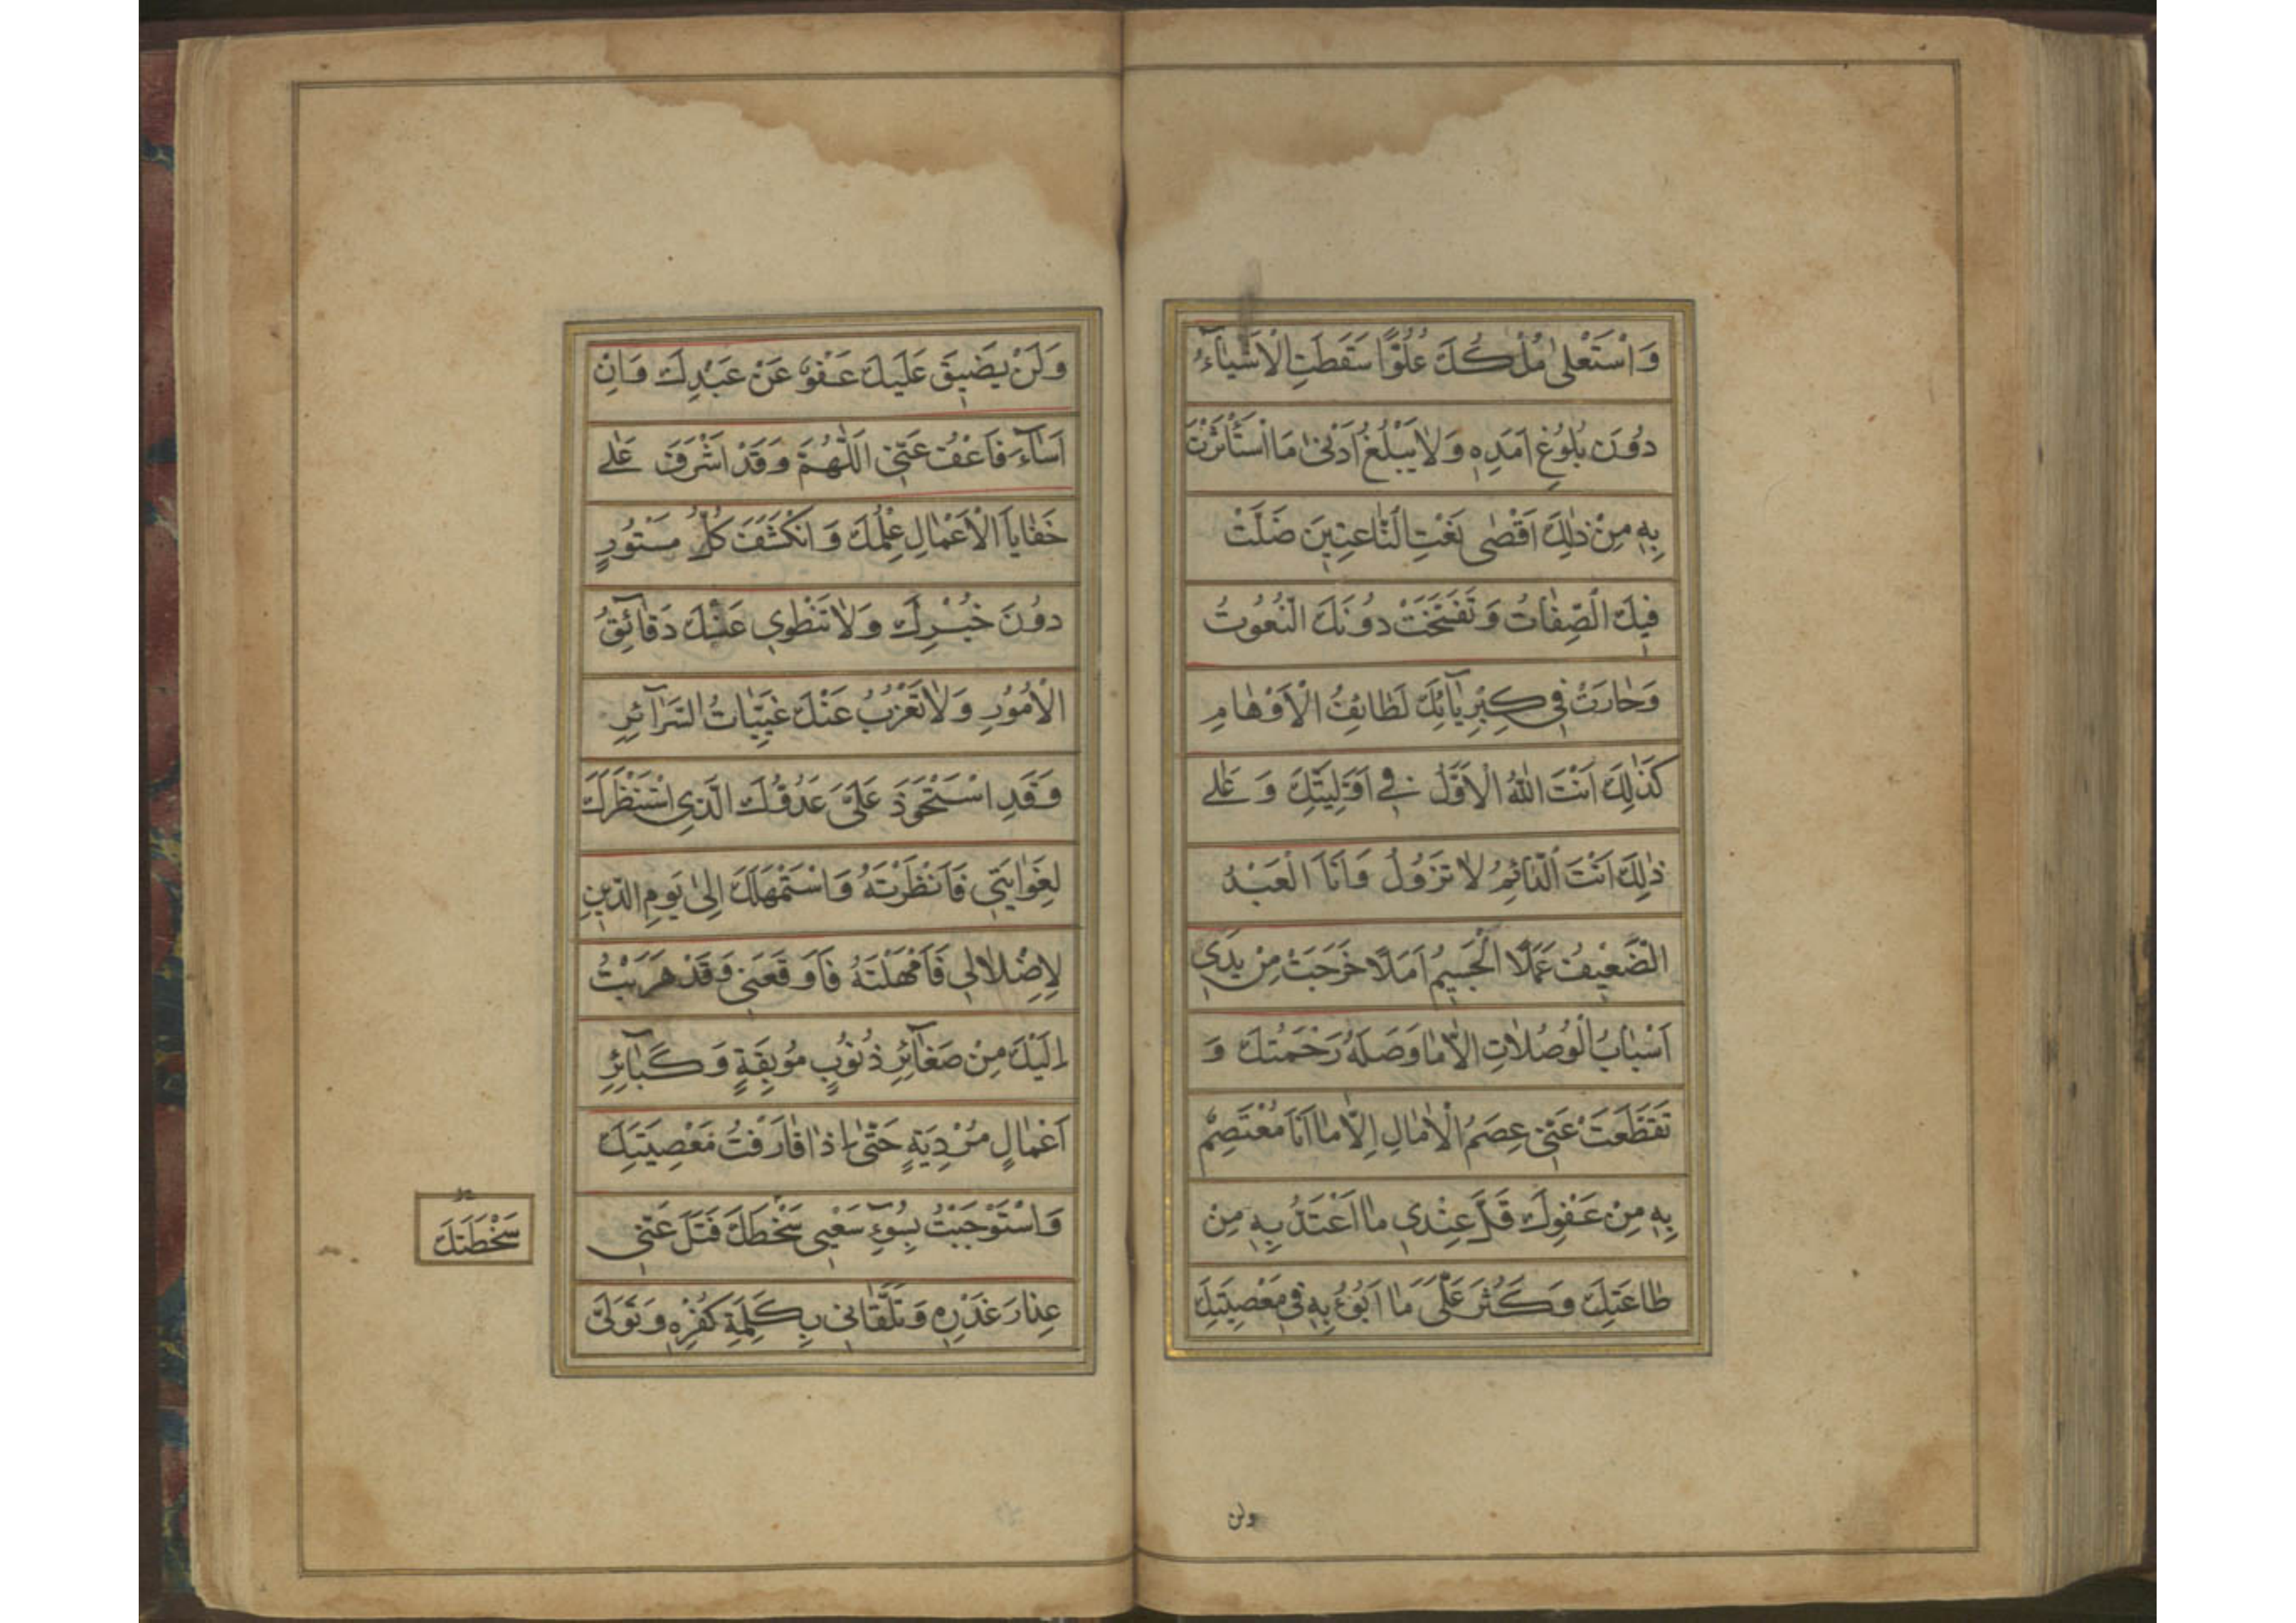 وَاسْتَعْلىٰ مُلْكُكَ عُلُوًّا سَقَطَتِ الْاَشْيٰآءُ
دُونَ بُلُوغِ اَمَدِهِ وَلايَبْلُغُ اَدْنىٰ مَا اسْتَأْثَرْتَ
بِهِ مِنْ ذٰلِكَ اَقْصٰى نَعْتِ النّٰاعِتِينَ ضَلَّتْ
فِيكَ الصِّفٰاتُ وَتَفَسَّخَتْ دُونَكَ النُّعُوتُ
وَحٰارَتْ فِي كِبْرِيٰآئِكَ لَطٰائِفُ الْاَوْهٰامِ
كَذٰلِكَ اَنْتَ اللّٰهُ الْاَوَّلُ فِي اَوَّلِيَّتِكَ وَ عَلٰى
ذٰلِكَ اَنْتَ الدّٰائِمُ لاتَزُولُ وَاَنَا الْعَبْدُ
الضَّعِيفُ عَمَلًا الْجَسِيمُ اَمَلًا خَرَجَتْ مِنْ يَدَيَّ
اَسْبٰابُ الْوُصُلٰاتِ اِلّٰا مٰا وَصَلَهُ رَحْمَتُكَ وَ
تَقَطَّعَتْ عَنّي عِصَمُ الْاٰمٰالِ اِلّٰا مٰا اَنَا مُعْتَصِمٌ
بِهِ مِنْ عَفْوِكَ قَلَّ عِنْدِي مٰا اَعْتَدُّ بِهِ مِنْ
طٰاعَتِكَ وَكَثُرَ عَلَيَّ مٰا اَبُوءُ بِهِ فِي مَعْصِيَتِكَ
ولن
وَلَنْ يَضِيقَ عَلَيْكَ عَفْوٌ عَنْ عَبْدِكَ وَاِنْ
اَسٰآءَ فَاعْفُ عَنّي اَللّٰهُمَّ وَقَدْ اَشْرَفَ عَلٰى
خَفٰايَا الْاَعْمٰالِ عِلْمُكَ وَانْكَشَفَ كُلُّ مَسْتُورٍ
دُونَ خُبْرِكَ وَلٰا تَنْطَوِي عَنْكَ دَقٰآئِقُ
الْاُمُورِ وَلٰا تَعْزُبُ عَنْكَ غَيِّبٰاتُ السَّرٰآئِرِ
وَقَدِ اسْتَحْوَذَ عَلَيَّ عَدُوُّكَ الَّذِي اسْتَنْظَرَكَ
لِغَوٰايَتِي فَاَنْظَرْتَهُ وَاسْتَمْهَلَكَ اِلىٰ يَوْمِ الدّينِ
لِاِضْلٰالِي فَاَمْهَلْتَهُ فَاَوْقَعَنِي وَقَدْ هَرَبْتُ
اِلَيْكَ مِنْ صَغٰآئِرِ ذُنُوبٍ مُوبِقَةٍ وَكَبٰآئِرِ
اَعْمٰالٍ مُرْدِيَةٍ حَتّىٰ اِذٰا قٰارَفْتُ مَعْصِيَتَكَ
وَاسْتَوْجَبْتُ بِسُوٓءِ سَعْيِي سَخْطَكَ فَتَلَ عَنّي
سَخْطَتَكَ
عِذٰارَ غَدْرِهِ وَتَلَقّٰانِي بِكَلِمَةِ كُفْرِهِ وَتَوَلَّى